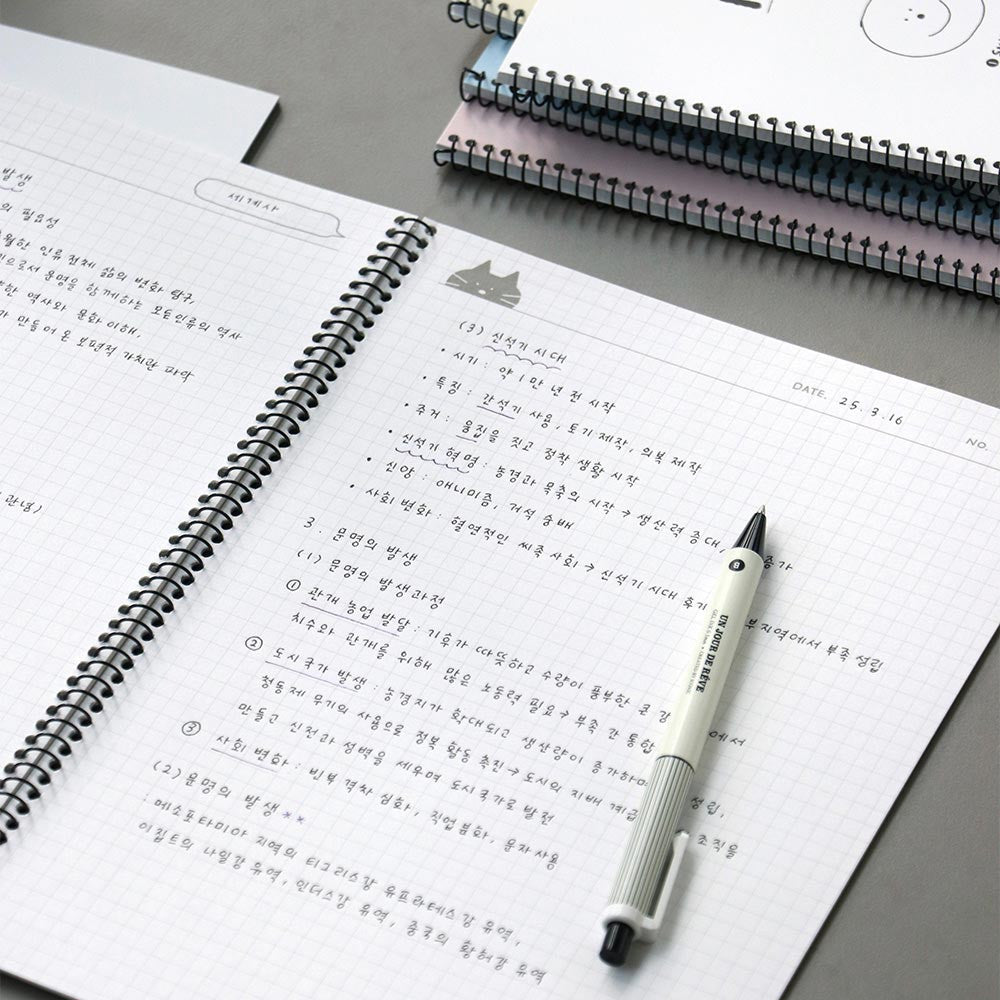 세계사
발생
의 필요성
월한 인류 전체 삶의 변화 탐구,
으로서 문명을 함께하는 모든 인류의 역사
한 역사와 문화 이해,
만들어 온 보편적 가치관 파악
관념)
DATE. 25.3.16
NO.
(3) 신석기 시대
• 시기 : 약 1만 년 전 시작
• 특징 : 간석기 사용, 토기 제작, 의복 제작
• 주거 : 움집을 짓고 정착 생활 시작
• 신석기 혁명 : 농경과 목축의 시작 → 생산력 증대, 증가
• 신앙 : 애니미즘, 거석 숭배
• 사회 변화 : 혈연적인 씨족 사회 → 신석기 시대 후기 부 지역에서 부족 성립
3. 문명의 발생
(1) 문명의 발생과정
① 관개 농업 발달 : 기후가 따뜻하고 수량이 풍부한 큰 강 에서
치수와 관개를 위해 많은 노동력 필요 → 부족 간 통합
② 도시국가 발생 : 농경지가 확대되고 생산량이 증가하며 성립,
청동제 무기의 사용으로 정복 활동 촉진 → 도시의 지배 계급 조직을
만들고 신전과 성벽을 세우며 도시국가로 발전
③ 사회 변화 : 빈부 격차 심화, 직업 분화, 문자 사용
(2) 문명의 발생 **
: 메소포타미아 지역의 티그리스강 유프라테스강 유역,
이집트의 나일강 유역, 인더스강 유역, 중국의 황허강 유역
UN JOUR DE RÊVE